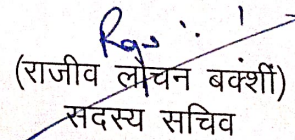 (राजीव लोचन बक्शी)
सदस्य सचिव